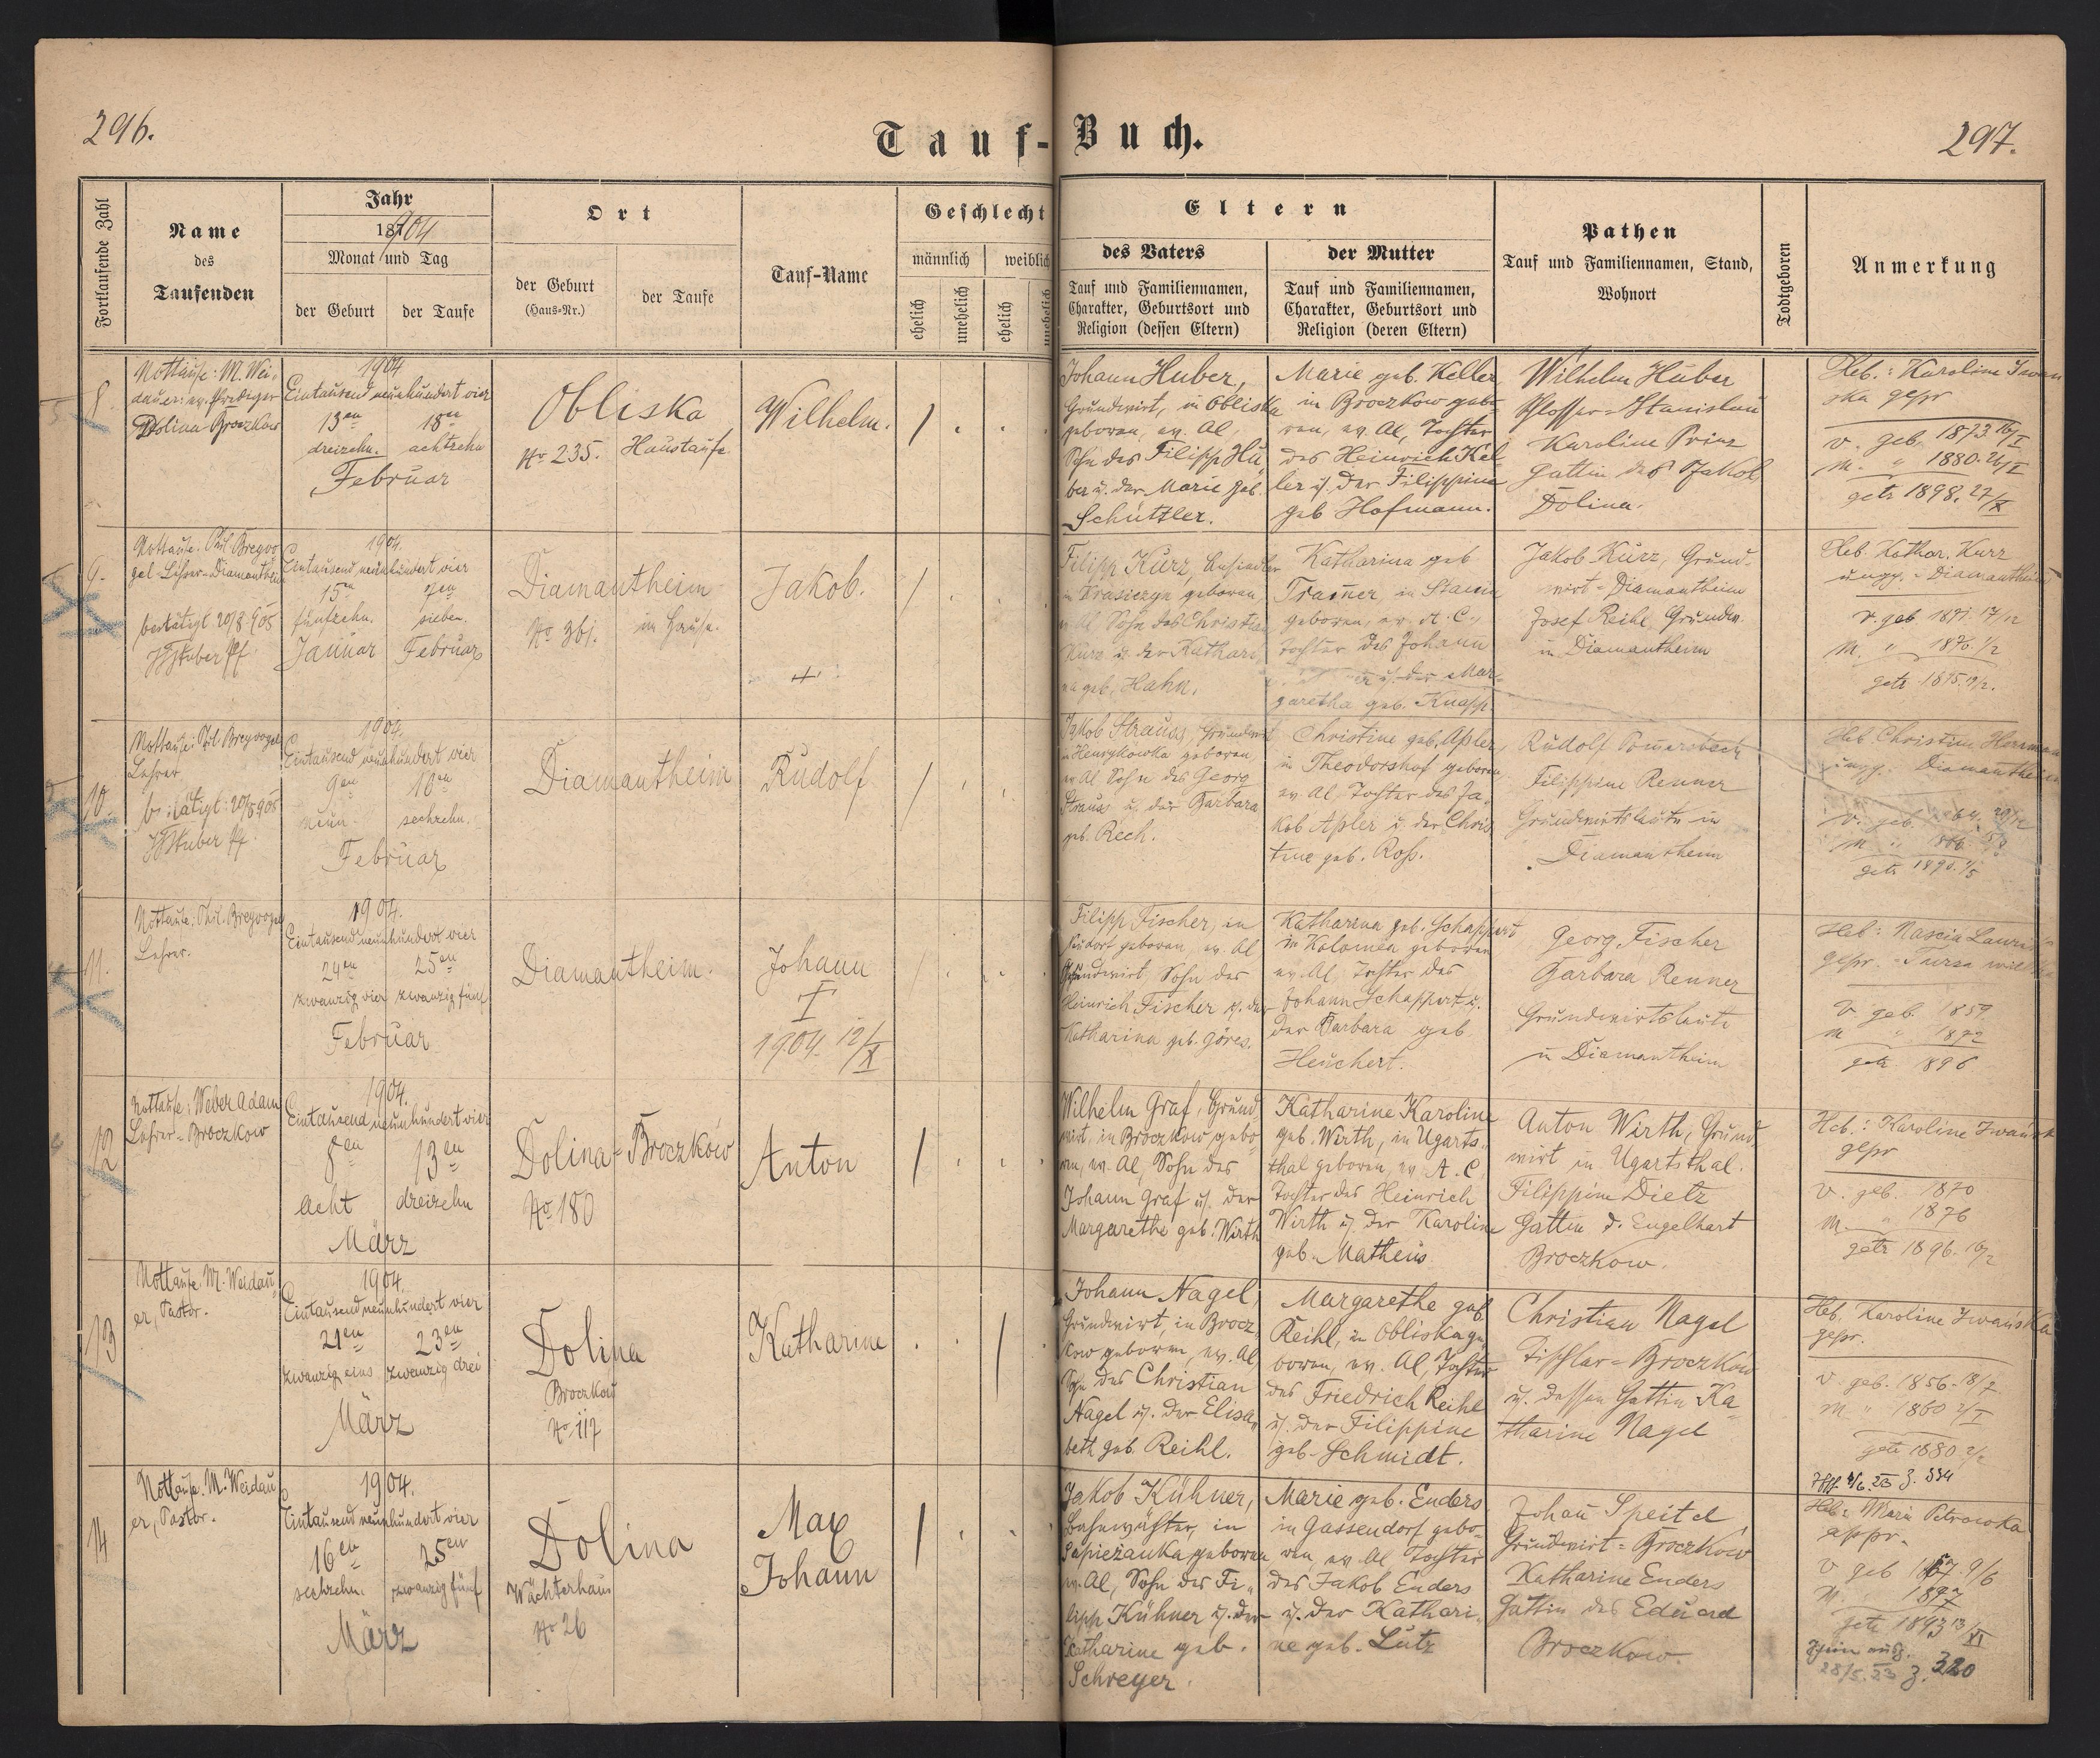 296.
Tauf-Buch.
297.
Fortlaufende Zahl
Name
des
Taufenden
Jahr
1904
Monat und Tag
der Geburt
der Taufe
Ort
der Geburt
(Haus-Nr.)
der Taufe
Tauf-Name
Geschlecht
männlich
weiblich
ehelich
unehelich
ehelich
unehelich
Eltern
des Vaters
Tauf und Familiennamen,
Charakter, Geburtsort und
Religion (dessen Eltern)
der Mutter
Tauf und Familiennamen,
Charakter, Geburtsort und
Religion (deren Eltern)
Pathen
Tauf und Familiennamen, Stand,
Wohnort
Todtgeboren
Anmerkung
8.
Nottaufe: M. Wei-
dauer: ev. Prediger
Dolina Broczkow
1904
Eintausend neunhundert vier
13en 18en
dreizehn. achtzehn
Februar
Obliska
No 235. Haustaufe.
Wilhelm.
Johann Huber,
Grundwirt, in Obliska
geboren, ev. Al,
Sohn des Filipp Hu-
ber u. der Marie geb.
Schüttler.
Marie geb. Keller,
in Broczkow gebo-
ren, ev. Al, Tochter
des Heinrich Kel-
ler u. der Filippine
geb Hofmann.
Wilhelm Huber
Schlosser = Stanislau
Karoline Prinz
Gattin des Jakob
Dolina.
Heb.: Karoline Iwan
ska gepr
v. geb. 1873 16/I
m. " 1880. 26/I
getr 1898. 27/X
9.
Nottaufe. Phil. Bregvo
gel = Lehrer = Diamantheim
bestätigt 20/8 905
Stuber Pf.
1904.
Eintausend neunhundert vier
15en 7en
fünfzehn. sieben.
Januar Februar
Diamantheim
No 361. im Hause.
Jakob.
+
Filipp Kurz, Ansiedler
in Krasiczyn geboren,
ev Al Sohn des Christian
Kurz u. der Kathari
na geb. Hahn.
Katharina geb
Tramer in Stanin
geboren, ev. A. C.,
Tochter des Johann
u. der Mar-
garetha geb. Knapp.
Jakob Kurz, Grund-
wirt = Diamantheim
Josef Reihl, Grundw.
in Diamantheim
Heb. Kathar. Kurz
ungpr. = Diamantheim
v. geb 1871. 17/12
m. " 1870. 1/2
getr 1895.
10.
Nottaufe: Phil Bregvogel
Lehrer
bestätigt: 20/8 905
Stuber Pf.
1904.
Eintausend neunhundert vier
9en 16en
neun. sechzehn.
Februar
Diamantheim
Rudolf
Jakob Strauss, Grundwirt
in Henrykowka geboren,
ev Al Sohn des Georg
Strauss u. der Barbara
geb. Rech.
Christine geb. Apler,
in Theodorshof geboren,
ev Al Tochter des Ja-
kob Apler u. der Chris
tine geb. Roß.
Rudolf Pomersbach
Filippine Renner
Grundwirtsleute in
Diamantheim
Heb Christine Herrman
ungpr. Diamantheim
getr 1890. 1/5
11.
Nottaufe: Phil. Bregvogel
Lehrer.
1904.
Eintausend neunhundert vier
24en 25en
zwanzig vier zwanzig fünf
Februar
Diamantheim.
Johann
1904. 12/X
Filipp Fischer, in
geboren, ev. Al
Grundwirt, Sohn des
Heinrich Fischer u. der
Katharina geb. Göres.
Katharina geb. Schappert
in Kolomea geboren
ev. Al, Tochter des
Johann Schappert u.
der Barbara geb
Heuchert.
Georg Fischer
Barbara Renner
Grundwirtsleute
in Diamantheim
Heb: Nascia
gepr. = Turza
v. geb. 1859
m " 1872
getr. 1896
12
Nottaufe: Weber Adam
Lehrer = Broczkow
1904.
Eintausend neunhundert vier
8en 13en
acht dreizehn
März
Dolina = Broczków
No 180
Anton
Wilhelm Graf, Grund
wirt, in Broczkow gebo-
ren, ev. Al, Sohn des
Johann Graf u. der
Margarethe geb. Wirth
Katharine Karoline
geb. Wirth, in Ugarts-
thal geboren, ev A. C
Tochter des Heinrich
Wirth u. der Karoline
geb. Matheus
Anton Wirth, Grund
wirt in Ugartsthal.
Filippine Dietz
Gattin d. Engelhart
Broczkow.
Heb.: Karoline Iwańsk
gepr
v. geb. 1870
m. " 1876
getr 1896. 16/2
13
Nottaufe M. Weidau-
er, Pastor.
1904.
Eintausend neunhundert vier
21en 23en
zwanzig eins zwanzig drei
März
Dolina
Broczkow
No 117
Katharine
Johann Nagel,
Grundwirt, in Brocz-
kow geboren, ev. Al,
Sohn des Christian
Nagel u. der Elisa-
beth geb. Reihl.
Margarethe geb.
Reihl, in Obliska ge
boren, ev. Al, Tochter
des Friedrich Reihl
u. der Filippine
geb. Schmidt.
Christian Nagel
Tischler = Broczków
u. dessen Gattin Ka-
tharine Nagel
Heb. Karoline Iwańska
gepr.
v. geb. 1856. 18/7
m " 1860 2/I
getr 1880 2/2
14
Nottaufe. M. Weidau
er, Pastor.
1904.
Eintausend neunhundert vier
16en 25en
sechzehn. zwanzig fünf
März
Dolina
Wächterhaus
No 26
Max
Johann
Jakob Kühner,
Bahnwächter, in
Sapieżanka geboren
ev. Al, Sohn des Fi-
lipp Kühner u. der
Katharine geb.
Schreyer.
Marie geb. Enders
in Gassendorf gebo-
ren, ev Al Tochter
des Jakob Enders
u. der Kathari-
ne geb. Lutz
Johan Speitel,
Grundwirt = Broczkow
Katharine Enders
Gattin des Eduard
Broczkow.
4/6. 23 Z. 334
Heb: Marie Petrowka
appr.
v geb 1867. 9/6
m. 1877
getr 1893 13/XI
Schein ausg.
28/5. 23 Z. 320